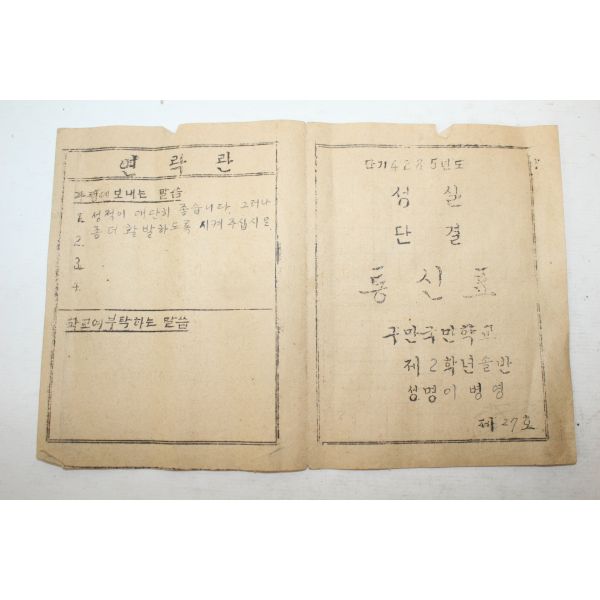 연락란
가정에 보내는 말씀
1. 성적이 대단히 좋습니다. 그러나
좀 더 활발하도록 시켜 주십시요.
2.
3.
4.
학교에 부탁하는 말씀
단기 4285년도
성실
단결
통신표
구만국민학교
제2학년솔반
성명이병영
제27호